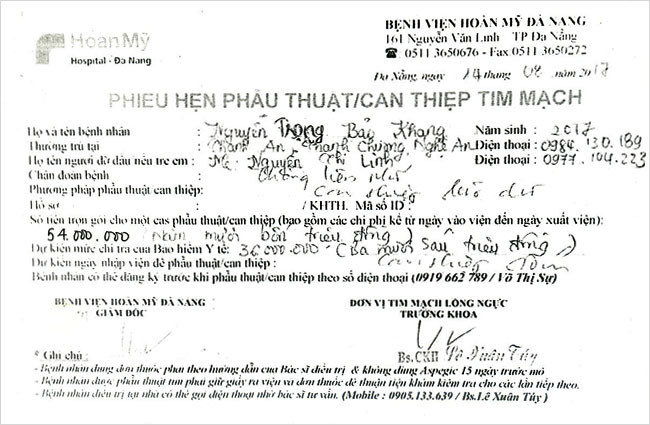 Hoàn Mỹ
Hospital - Đà Nẵng
BỆNH VIỆN HOÀN MỸ ĐÀ NẴNG
161 Nguyễn Văn Linh TP Đà Nẵng
☎ 0511 3650676 - Fax 0511 3650272
Đà Nẵng, ngày 14 tháng 08 năm 2017
PHIẾU HẸN PHẪU THUẬT/CAN THIỆP TIM MẠCH
Họ và tên bệnh nhân : Nguyễn Trọng Bảo Khang Năm sinh : 2017
Thường trú tại : Thanh An, Thanh Chương, Nghệ An Điện thoại : 0984.130.189
Họ tên người đỡ đầu nếu trẻ em : Mẹ: Nguyễn Thị Linh Điện thoại : 0977.104.223
Chẩn đoán bệnh : Thông liên nhĩ
Phương pháp phẫu thuật can thiệp: Can thiệp
Hồ sơ / KHTH. Mã số ID :
Số tiền trọn gói cho một cas phẫu thuật/can thiệp (bao gồm các chi phí kể từ ngày vào viện đến ngày xuất viện):
54.000.000 (Năm mươi bốn triệu đồng)
Dự kiến mức chi trả của Bảo hiểm Y tế: 36.000.000 (Ba mươi sáu triệu đồng)
Dự kiến ngày nhập viện để phẫu thuật/can thiệp :
Bệnh nhân có thể đăng ký trước khi phẫu thuật/can thiệp theo số điện thoại (0919 662 789 / Võ Thị Sự)
BỆNH VIỆN HOÀN MỸ ĐÀ NẴNG
GIÁM ĐỐC
ĐƠN VỊ TIM MẠCH LỒNG NGỰC
TRƯỞNG KHOA
Bs.CKII Lê Xuân Túy
* Ghi chú :
- Bệnh nhân dùng đơn thuốc phải theo hướng dẫn của Bác sĩ điều trị & không dùng Aspegic 15 ngày trước mổ
- Bệnh nhân được phẫu thuật tim phải giữ giấy ra viện và đơn thuốc để thuận tiện khám kiểm tra cho các lần tiếp theo.
- Bệnh nhân điều trị tại nhà có thể gọi điện thoại nhờ bác sĩ tư vấn. (Mobile : 0905.133.639 / Bs.Lê Xuân Túy )